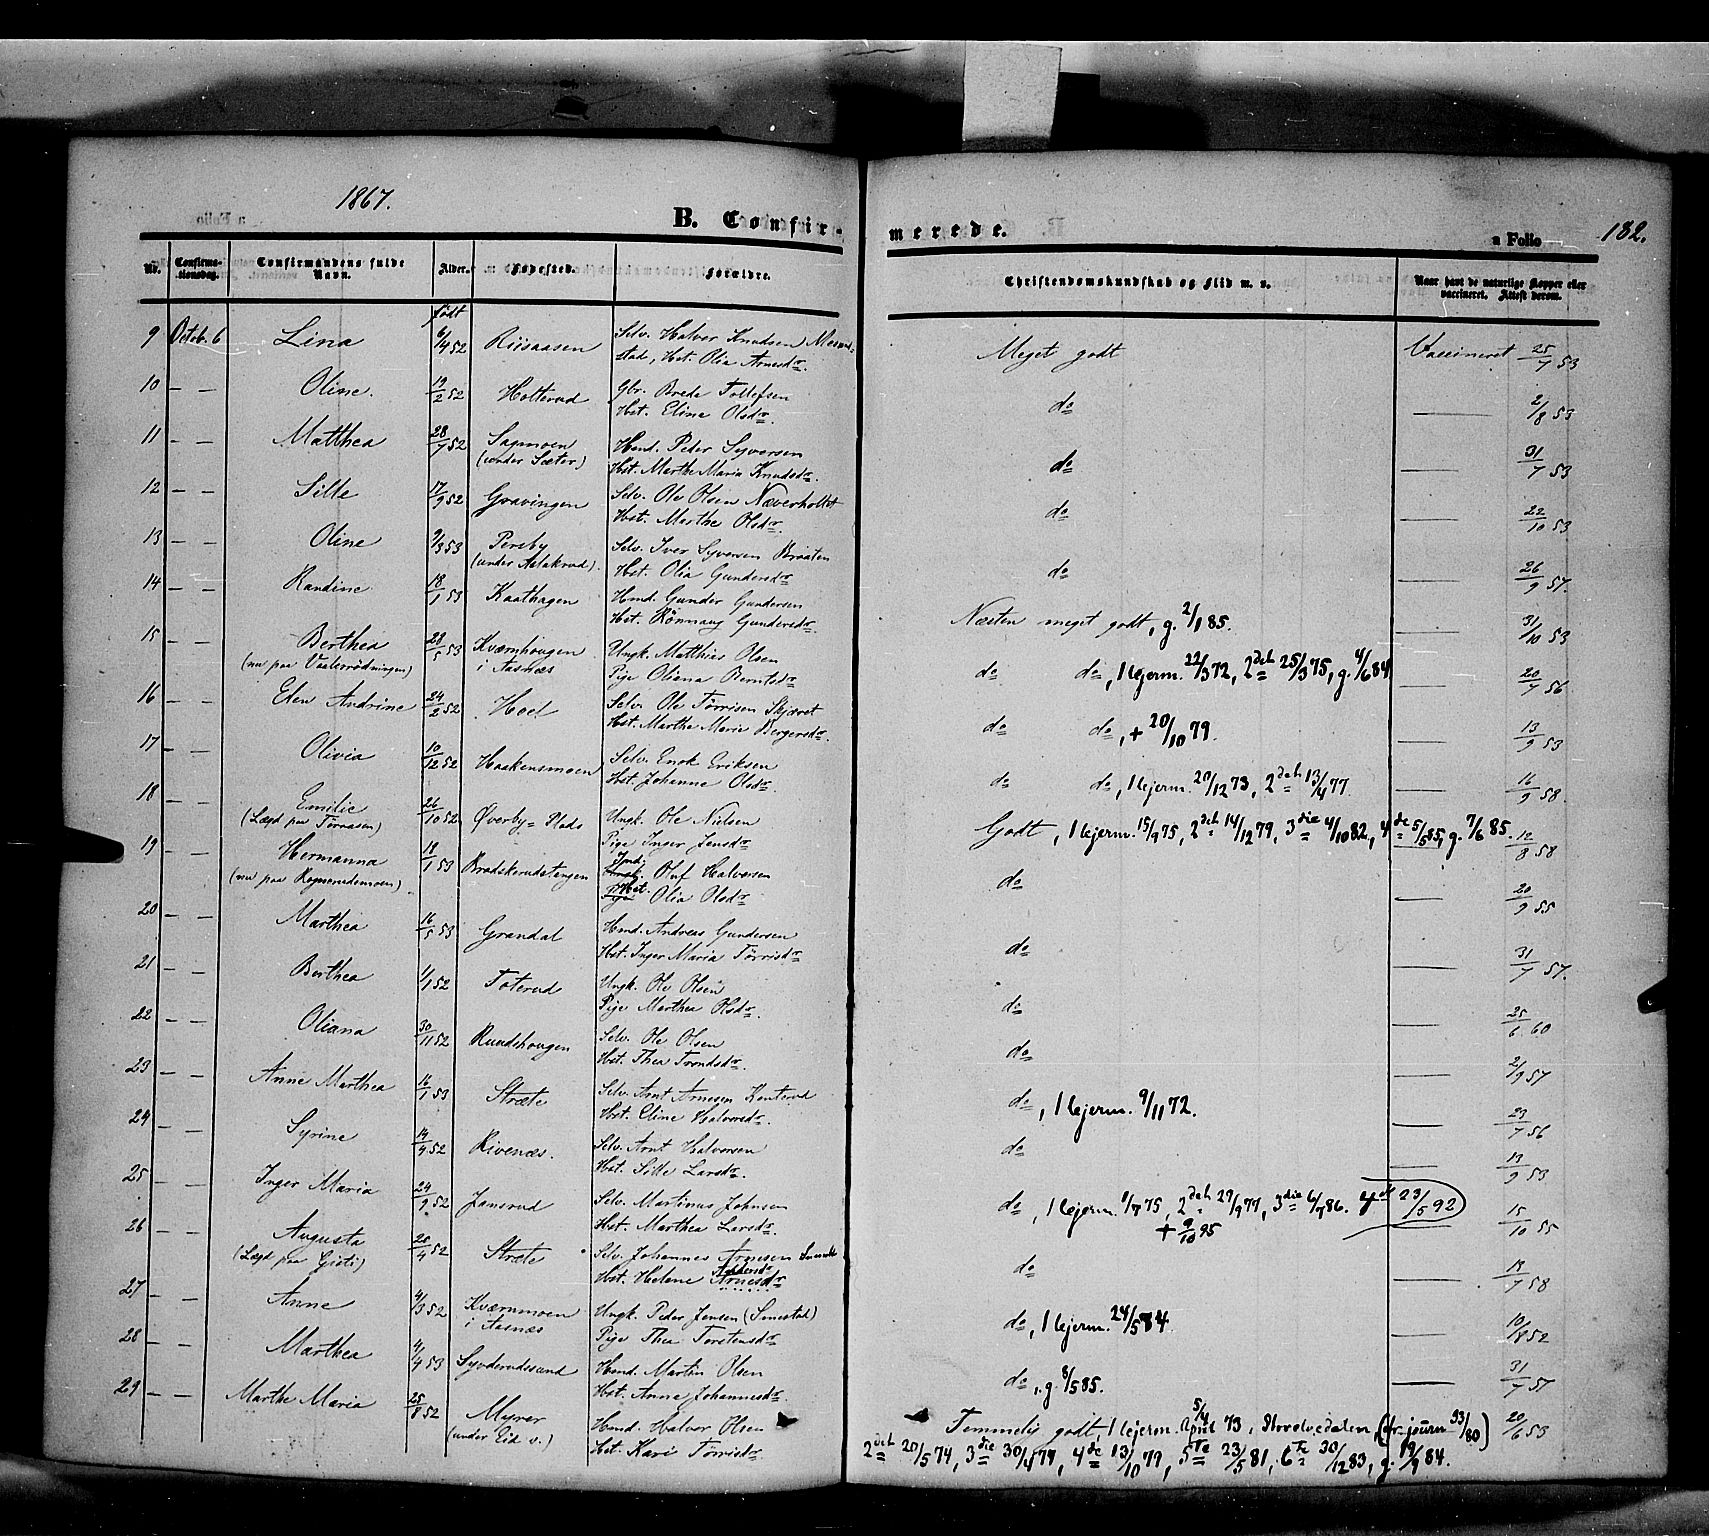 1867.
B. Confir-
merede.
a Folio
182.
No.
Confirma-
tionsdag.
Confirmandens fulde
Navn.
Alder.
Fødested.
Forældre.
Christendomskundskab og Flid m. v.
Naar havt de naturlige Kopper eller
vaccineret. Attest derom.
født
9 Octob. 6 Lina 6/4 52 Riisaasen Selv. Halvor Knudsen
stad, Hst. Olia Arnesdr. Meget godt Vaccineret 25/7 53
10 — — Oline. 19/2 52 Hotterud Gbr. Brede Tollefsen
Hst. Eline Olsdr. do — 2/8 53
11 — — Matthea 28/7 52 Sagmoen Hmd. Peder Syversen
(under Sæter) Hst. Marthe Maria Knudsdr. do — 31/7 53
12 — — Sille 17/9 52 Gravingen Selv. Ole Olsen Næverholtet
Hst. Marthe Olsdr. do — 22/10 53
13 — — Oline 2/3 53 Persby Selv. Iver Syversen Braaten
(under Aslakrud). Hst. Olia Gundersdr. do — 26/9 57.
14 — — Randine 18/1 53 Kaathagen Hmd. Gunder Gundersen
Hst. Rönnaug Gundersdr. Næsten meget godt, g. 2/1 85. — 31/10 53
15 — — Berthea 28/5 53 Kværnhougen Ungk. Matthias Olsen
(nu paa Vaalerrödningen) i Aasnæs Pige Oliana Berntsdr. do do, 1 lejerm. 22/3 72, 2det 25/3 75, g. 4/6 84 — 20/7 56
16 — — Elen Andrine 24/2 52 Hoel Selv. Ole Törrisen Skjæret
Hst. Marthe Marie Bergersdr. do do, + 20/10 79. — 13/9 53
17 — — Olivia 10/12 52 Haakensmoen Selv. Enok Eriksen
Hst. Johanne Olsdr. do do, 1 lejerm. 20/12 73, 2det 13/4 77. — 16/9 58.
18 — — Emilie 26/10 52 Øverby-Plads Ungk. Ole Nielsen
(Lægd paa Törraasen) Pige Inger Jensdr. Godt, 1 lejerm. 15/9 75, 2det 14/12 79, 3die 4/10 82, 4de 5/5 85, g. 7/6 85. 12/8 58
19 — — Hermanna 18/1 53 Bradskerudstangen Oluf Halvorsen
(nu paa Rognerudmoen) Hst. Olia Olsdr. do — 20/9 55
20 — — Marthea 16/5 53 Grandal Hmd. Andreas Gundersen
Hst. Inger Maria Törrisdr. do — 31/7 57.
21 — — Berthea 1/1 52 Toterud Ungk. Ole Olsen
Pige Marthea Olsdr. do — 25/6 60
22 — — Oliana 30/11 52 Ruudshougen Selv. Ole Olsen
Hst. Thea Trondsdr. do — 2/9 57
23 — — Anne Marthea 16/1 53 Stræte Selv. Arnt Arnesen Kenterud
Hst. Eline Halvorsdr. do, 1 lejerm. 9/11 72. — 23/7 56
24 — — Syrine 14/4 52 Rivenæs. Selv. Arnt Halvorsen
Hst. Sille Larsdr. do — 13/9 53
25 — — Inger Maria 24/9 52 Jansrud Selv. Martinus Johnsen
Hst. Marthea Larsdr. do, 1 lejerm. 1/7 75, 2det 27/9 77, 3die 6/7 86. 4de 23/5 92
+ 9/10 95 15/10 55
26 — — Augusta 20/4 52 Stræte Selv. Johannes Arnesen
(Lægd paa Gisti) Hst. Helene Arnesdr. do — 18/7 58
27 — — Anne 4/3 52 Kværnmoen Ungk. Peder Jensen (Smestad)
i Aasnæs Pige Thea Torstensdr. do, 1 lejerm. 24/5 84. — 10/8 52
28 — — Marthea 4/4 53 Syverudssund Hmd. Martin Olsen
Hst. Anne Johannesdr. do, g. 8/5 85. — 31/7 57
29 — — Marthe Maria 25/8 52 Myrer Hmd. Halvor Olsen
(under Eid v.) Hst. Kari Törrisdr. Temmelig godt, 1 lejerm. 5/4 April 73, (fr. journ. 33/80) 20/6 53
2det 20/5 74, 3die 30/4 77, 4de 13/10 79, 5te 23/5 81, 6te 30/12 83, g. 19/9 84.